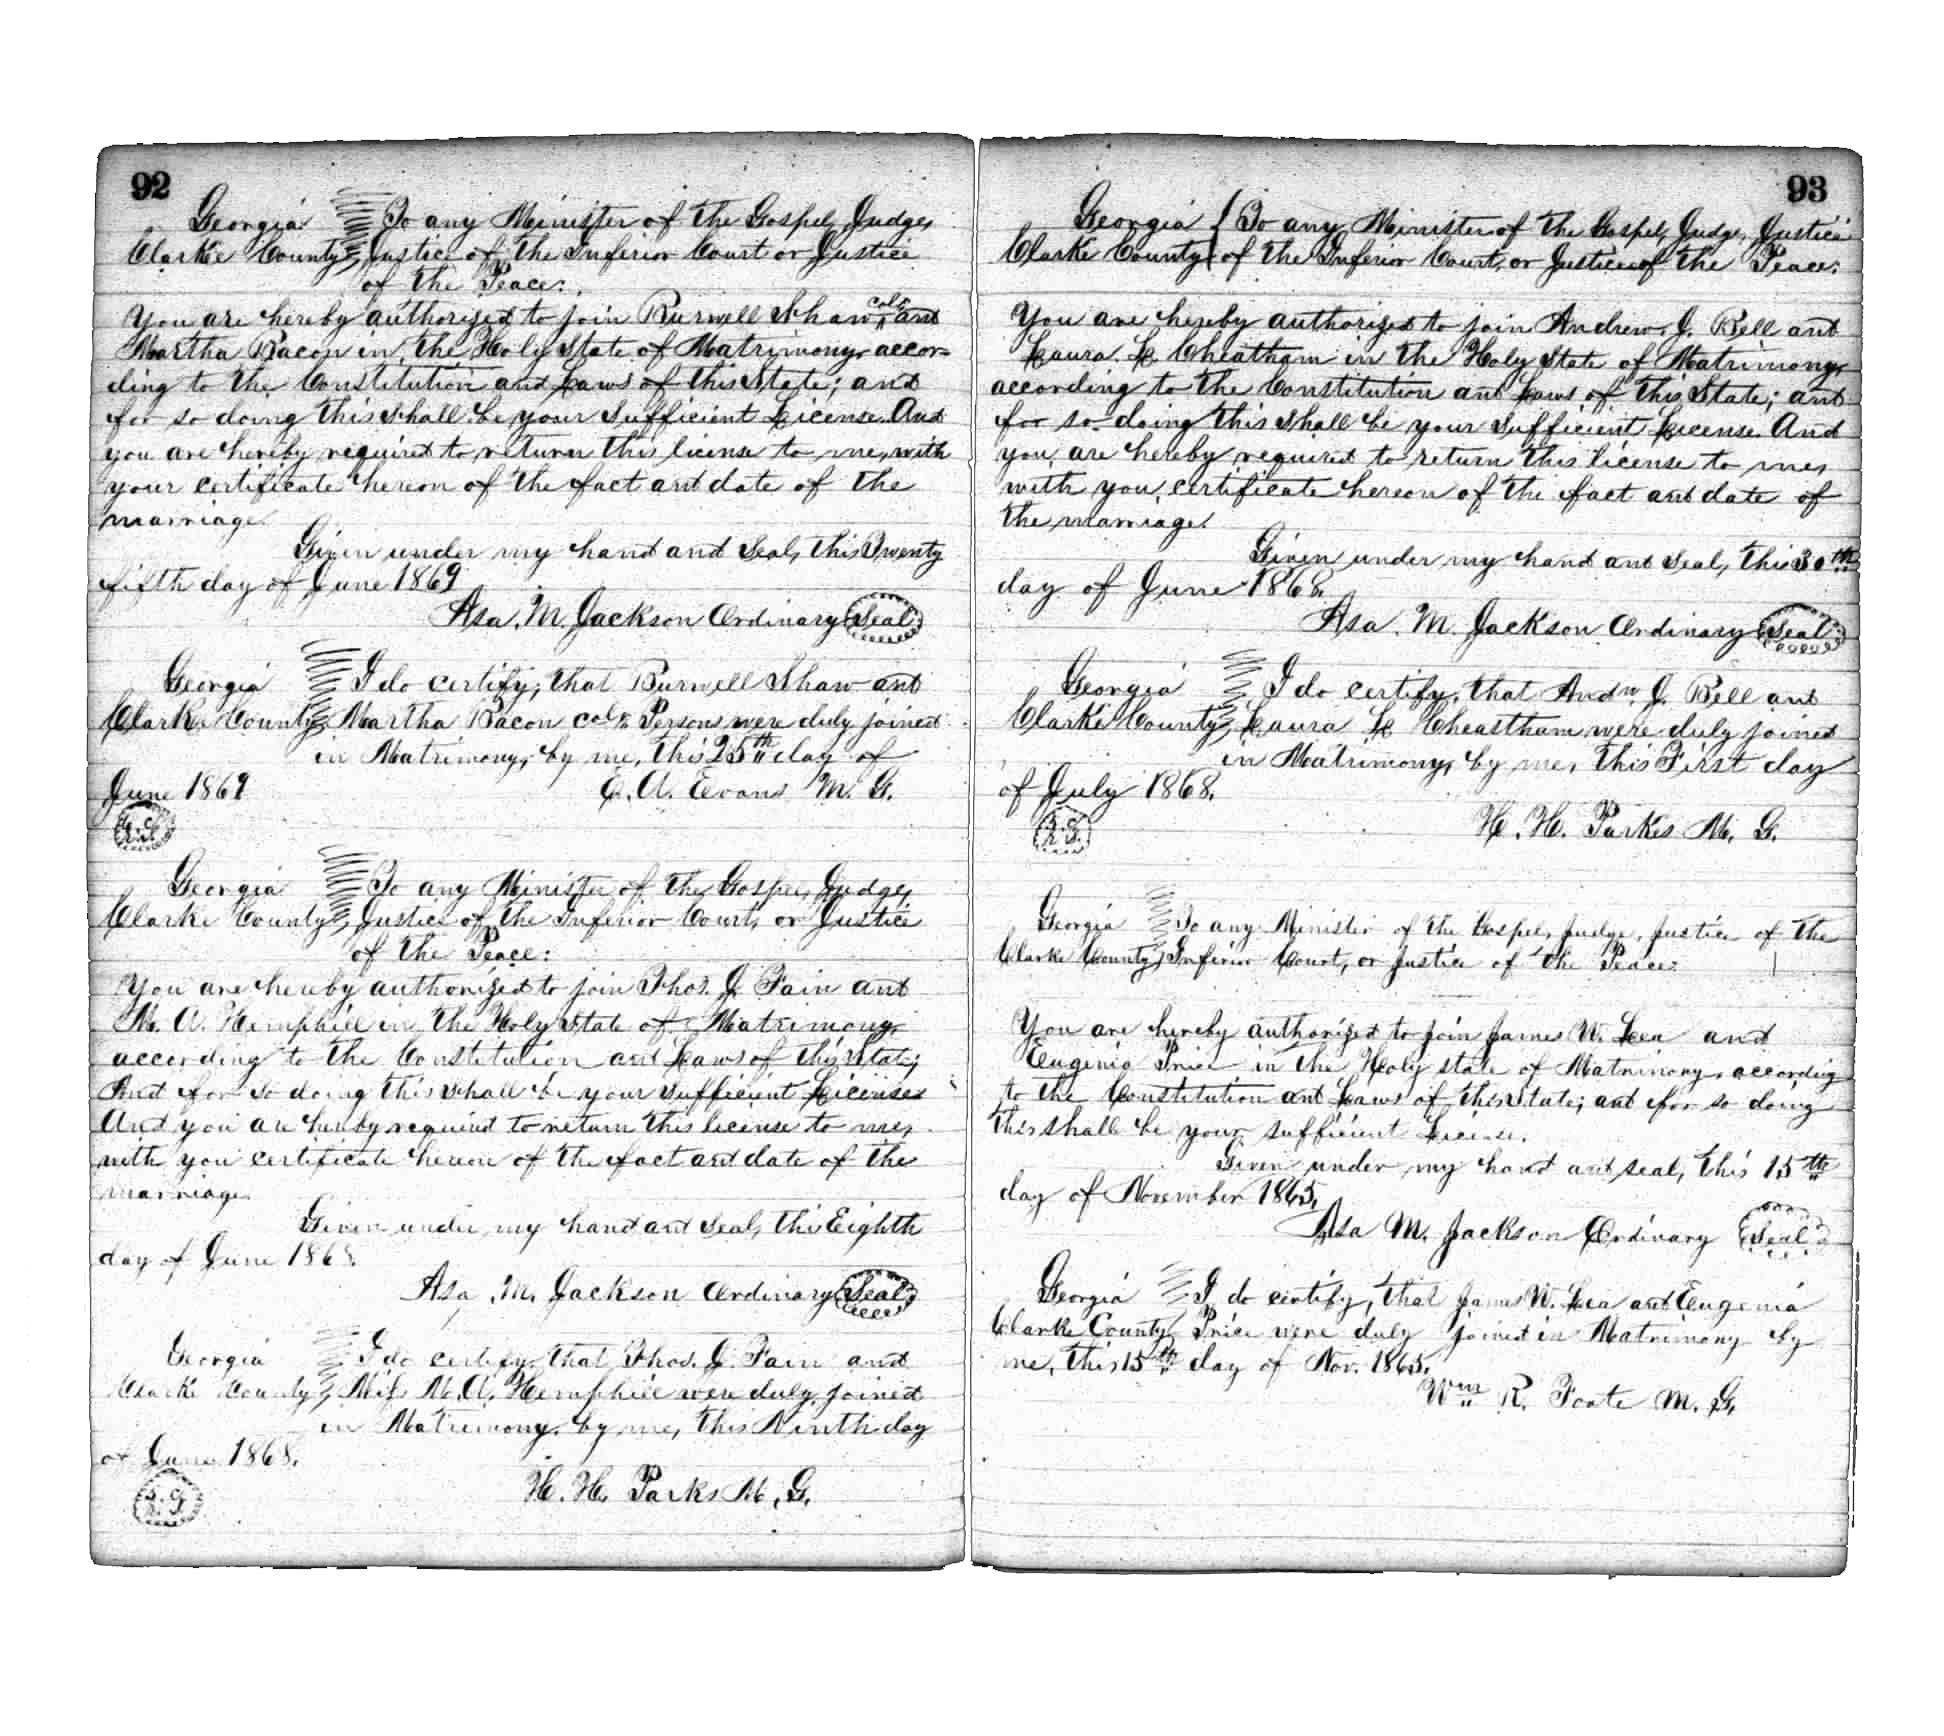 92
Georgia To any Minister of the Gospel, Judge,
Clarke County, Justice of the Inferior Court or Justice
of the Peace:
You are hereby authorized to join Burwell Shaw cold and
Martha Bacon in the Holy State of Matrimony, accor-
ding to the Constitution and Laws of this State; and
for so doing this shall be your sufficient License. And
you are hereby required to return this license to me, with
your certificate hereon of the fact and date of the
marriage.
Given under my hand and Seal, this Twenty
fifth day of June 1869
Asa. M. Jackson Ordinary Seal
Georgia I do certify, that Burwell Shaw and
Clarke County, Martha Bacon cold Persons were duly joined
in Matrimony, by me, this 25th day of
June 1869 E. A. Evans M. G.
Georgia To any Minister of the Gospel, Judge,
Clarke County, Justice of the Inferior Court, or Justice
of the Peace:
You are hereby authorized to join Thos. J. Fain and
M. A. Hemphill in the Holy State of Matrimony,
according to the Constitution and Laws of this State;
And for so doing this shall be your sufficient License
And you are hereby required to return this license to me,
with you certificate hereon of the fact and date of the
marriage.
Given under my hand and Seal, this Eighth
day of June 1868.
Asa. M. Jackson Ordinary Seal
Georgia I do certify, that Thos. J. Fain and
Clarke County, Miss M. A. Hemphill were duly joined
in Matrimony, by me, this Ninth day
of June 1868.
H. H. Parks M. G.
93
Georgia To any Minister of the Gospel, Judge, Justice
Clarke County of the Inferior Court, or Justice of the Peace:
You are hereby authorized to join Andrew. J. Bell and
Laura. L. Cheatham in the Holy State of Matrimony,
according to the Constitution and Laws of this State; and
for so doing this shall be your sufficient License. And
you are hereby required to return this license to me,
with you, certificate hereon of the fact and date of
the marriage.
Given under my hand and Seal, this 30th
day of June 1868.
Asa. M. Jackson Ordinary Seal
Georgia I do certify, that Andw. J. Bell and
Clarke County, Laura L. Cheastham were duly joined
in Matrimony, by me, this First day
of July 1868.
H. H. Parkes M. G.
Georgia To any Minister of the Gospel, Judge, Justice of the
Clarke County, Inferior Court, or Justice of the Peace:
You are hereby authorized to join James W. Lea and
Eugenia Price in the Holy state of Matrimony, according
to the Constitution and Laws of this State; and for so doing
this shall be your sufficient License.
Given under my hand and seal, this 15th
day of November 1865,
Asa M. Jackson Ordinary Seal
Georgia I do certify, that James W. Lea and Eugenia
Clarke County, Price were duly joined in Matrimony by
me, this 15th day of Nov. 1865.
Wm R. Foote M. G.